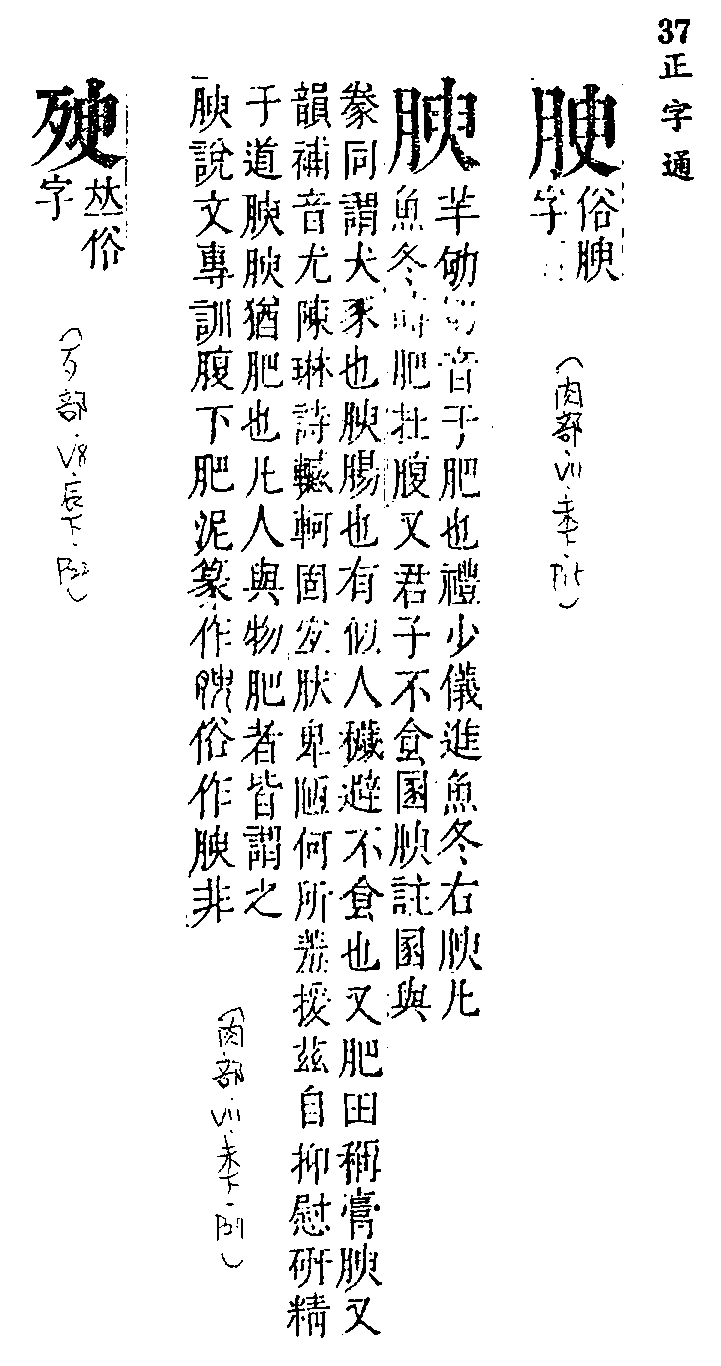 37 正字通
俗腴
字
腴
羊劬切音于肥也禮少儀進魚冬右腴凡
魚冬時肥在腹又君子不食圂腴註圂與
豢同謂犬豕也腴腸也有似人穢避不食也又肥田稱膏腴又
韻補音尤陳琳詩轗軻固宜然卑陋何所羞援茲自抑慰研精
于道腴腴猶肥也凡人與物肥者皆謂之
腴說文專訓腹下肥泥篆作腴俗作腴非
𠀤俗
字
(肉部·VII·未下·P15)
(肉部·VII·未下·P39)
(歹部·V8·辰下·P32)